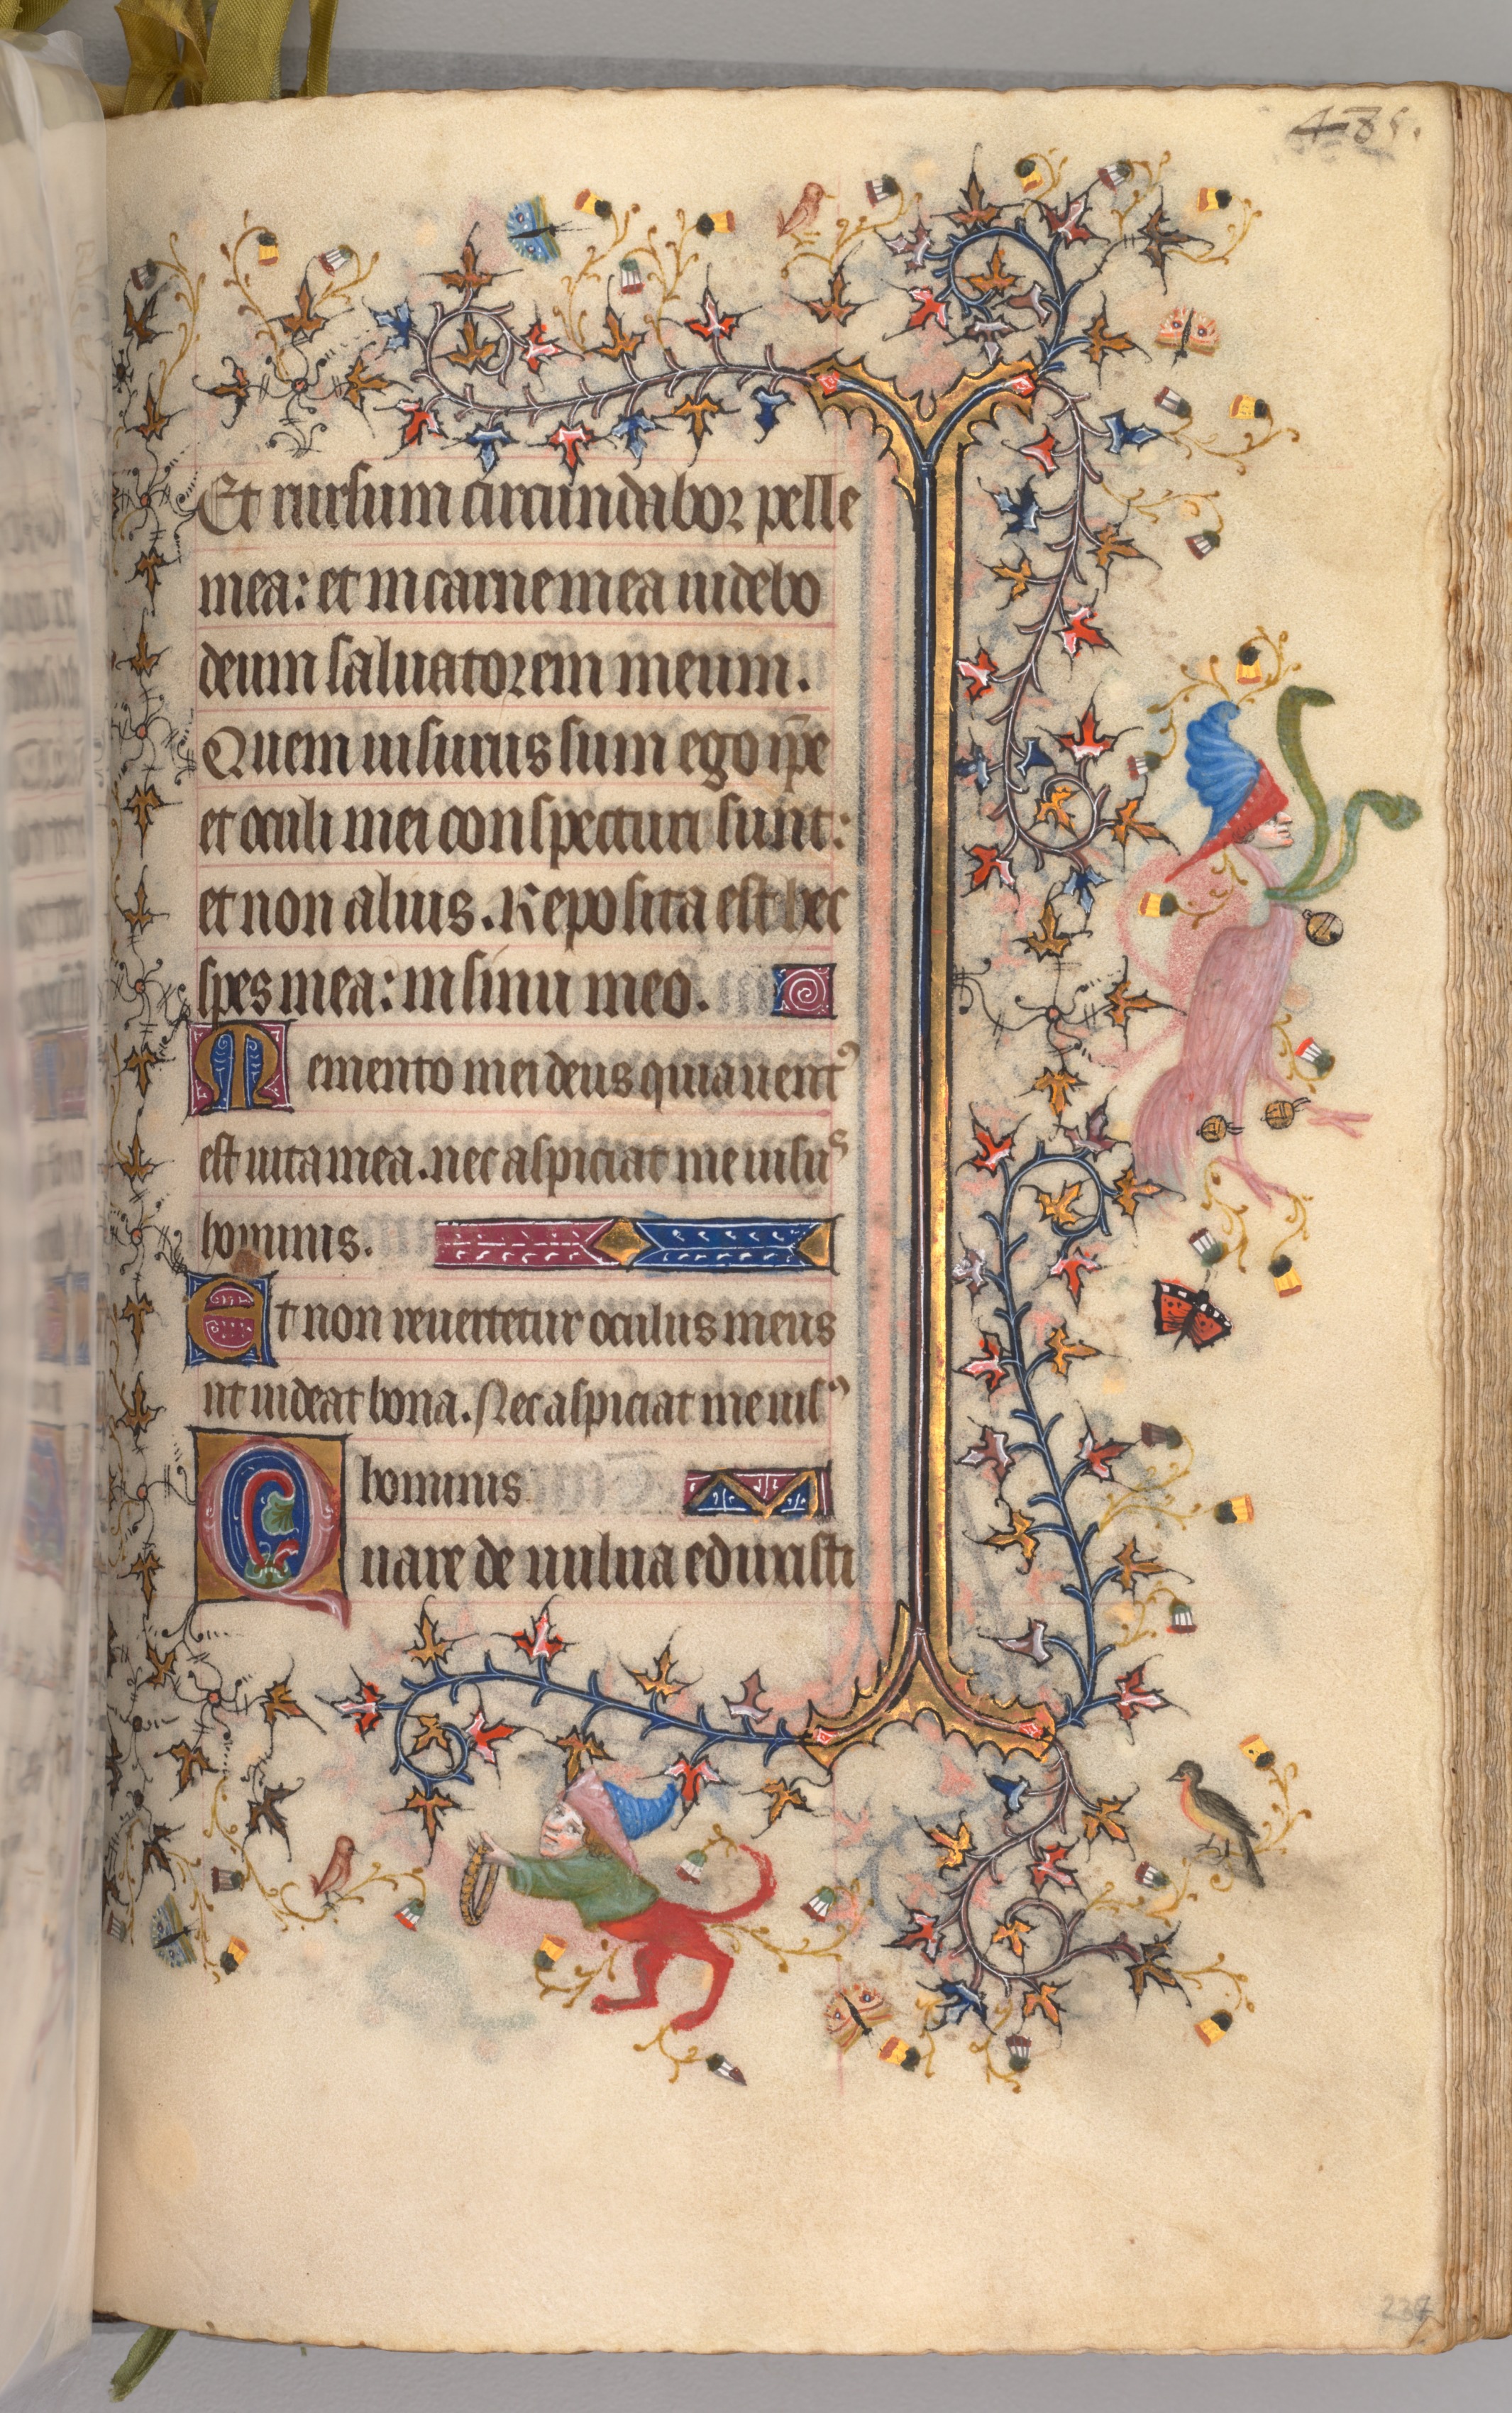 485.
Et rursum circundabor pelle
mea: et in carne mea uidebo
deum saluatorem meum.
Quem uisurus sum ego ip̄e
et oculi mei conspecturi sunt:
et non alius. Reposita est hec
spes mea: in sinu meo.
Memento mei deus quia uent⁹
est uita mea. nec aspiciat me uisuˢ
hominis.
Et non reuertetur oculus meus
ut uideat bona. Nec aspiciat me uis⁹
hominis
Quare de uulua eduxisti